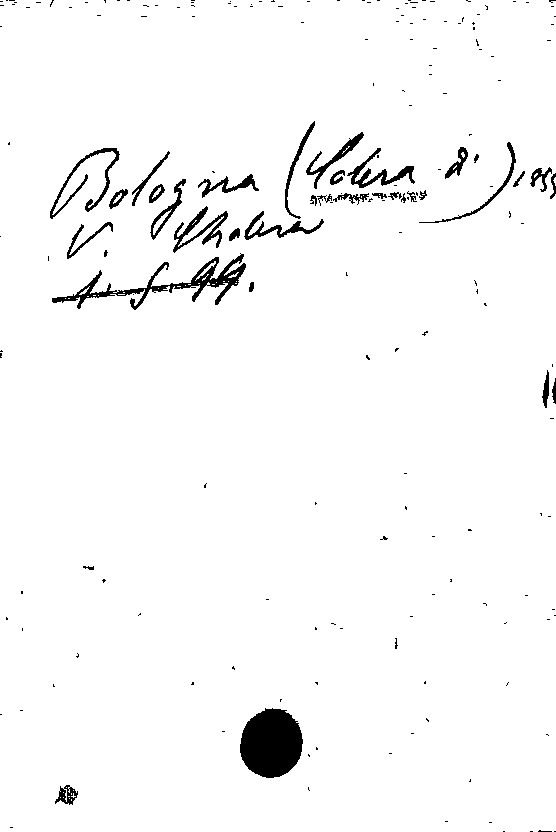 Bologna (Colera di) 1855
V. Cholera
1. S. 99.